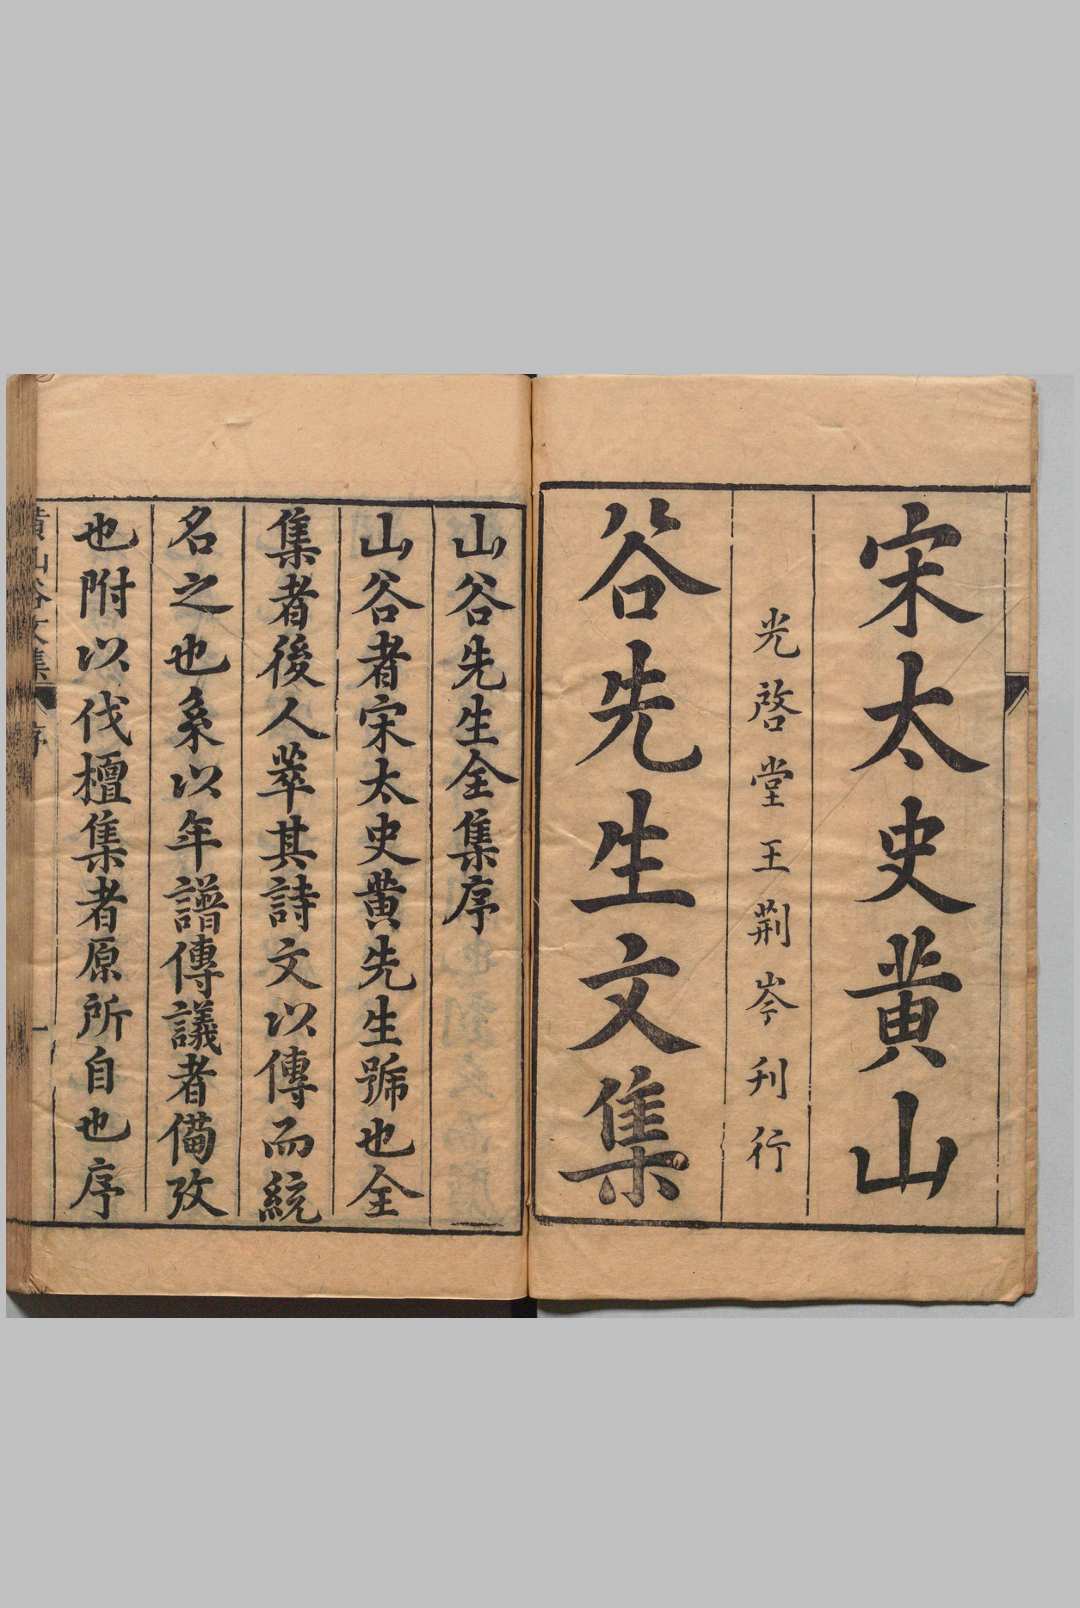 宋太史黄山
光啓堂王荆岑刊行
谷先生文集
山谷先生全集序
山谷者宋太史黄先生號也全
集者後人萃其詩文以傳而統
名之也系以年譜傳議者備攷
也附以伐檀集者原所自也序
黄山谷文集 序 一